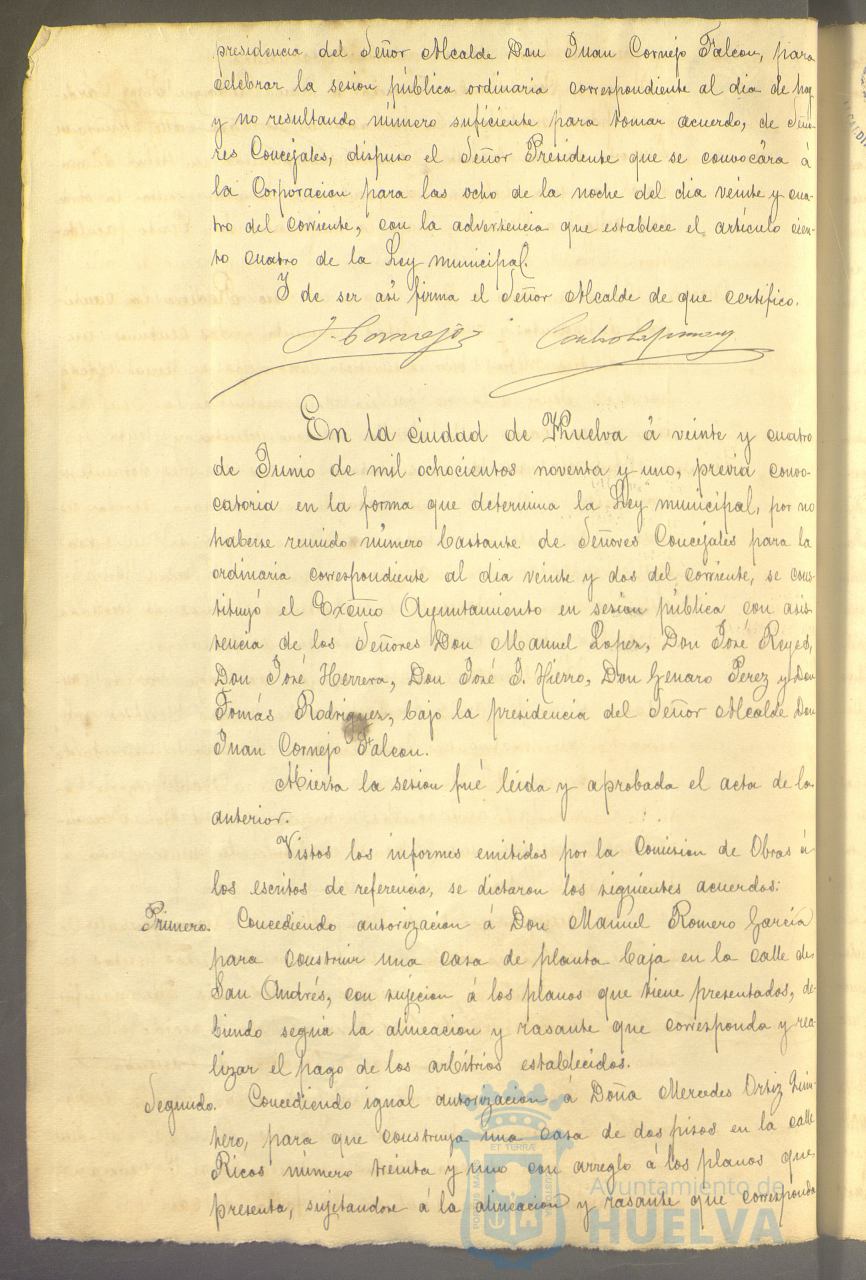 presidencia del Señor Alcalde Don Juan Cornejo Falcon, para
celebrar la sesion pública ordinaria correspondiente al dia de hoy
y no resultando número suficiente para tomar acuerdo, de Seño-
res Concejales, dispuso el Señor Presidente que se convocára á
la Corporacion para las ocho de la noche del dia veinte y cua-
tro del corriente, con la advertencia que establece el artículo cien-
to cuatro de la Ley municipal.
Y de ser asi firma el Señor Alcalde de que certifico.
J. Cornejo
En la ciudad de Huelva á veinte y cuatro
de Junio de mil ochocientos noventa y uno, previa convo-
catoria en la forma que determina la Ley municipal, por no
haberse reunido número bastante de Señores Concejales para la
ordinaria correspondiente al dia veinte y dos del corriente, se cons-
tituyó el Excmo Ayuntamiento en sesion pública con asis-
tencia de los Señores Don Manuel Lopez, Don José Reyes,
Don José Herrera, Don José J. Hierro, Don Genaro Perez y Don
Tomás Rodriguez, bajo la presidencia del Señor Alcalde Don
Juan Cornejo Falcon.
Abierta la sesion fué leida y aprobada el acta de la
anterior.
Vistos los informes emitidos por la Comision de Obras á
los escritos de referencia, se dictaron los siguientes acuerdos:
Primero. Concediendo autorizacion á Don Manuel Romero García
para construir una casa de planta baja en la calle de
San Andrés, con sujecion á los planos que tiene presentados, de-
biendo seguir la alineacion y rasante que corresponda y rea-
lizar el pago de los arbitrios establecidos.
Segundo. Concediendo igual autorizacion á Doña Mercedes Ortiz Quin-
tero, para que construya una casa de dos pisos en la calle
Ricos número treinta y uno con arreglo á los planos que
presenta, sujetandose á la alineacion y rasante que corresponda
Ayuntamiento de
HUELVA